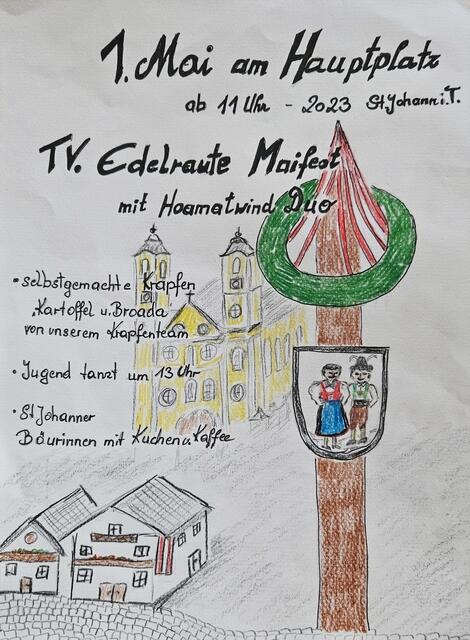 1. Mai am Hauptplatz
ab 11 Uhr - 2023 St.Johann i.T.
TV. Edelraute Maifest
mit Hoamatwind Duo
• selbstgemachte Krapfen
Kartoffel u. Broada
von unserem Krapfenteam
• Jugend tanzt um 13 Uhr
• St.Johanner
Bäurinnen mit Kuchen u. Kaffee